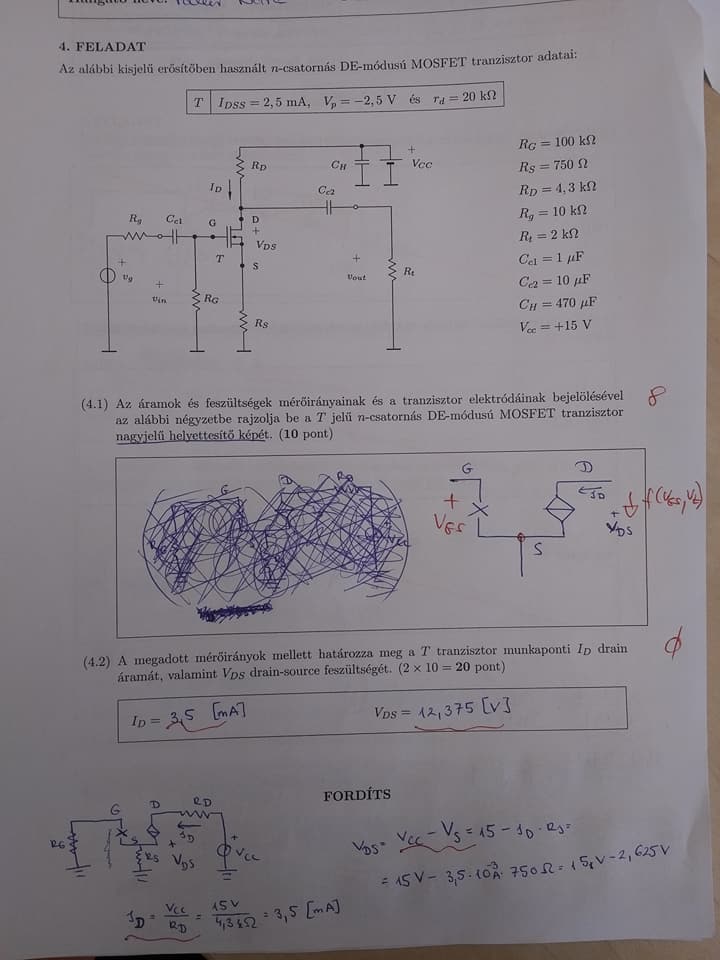 4. FELADAT
Az alábbi kisjelű erősítőben használt n-csatornás DE-módusú MOSFET tranzisztor adatai:
T I_DSS = 2,5 mA, V_p = −2,5 V és r_d = 20 kΩ
R_D
C_H
+
V_CC
I_D
C_c2
R_g
C_c1
G
D
+
V_DS
T
S
+
v_g
+
v_in
R_G
+
v_out
R_t
R_S
R_G = 100 kΩ
R_S = 750 Ω
R_D = 4,3 kΩ
R_g = 10 kΩ
R_t = 2 kΩ
C_c1 = 1 μF
C_c2 = 10 μF
C_H = 470 μF
V_cc = +15 V
(4.1) Az áramok és feszültségek mérőirányainak és a tranzisztor elektródáinak bejelölésével
az alábbi négyzetbe rajzolja be a T jelű n-csatornás DE-módusú MOSFET tranzisztor
nagyjelű helyettesítő képét. (10 pont)
8
G
D
I_D
+
V_GS
+
V_DS
S
(4.2) A megadott mérőirányok mellett határozza meg a T tranzisztor munkaponti I_D drain
áramát, valamint V_DS drain-source feszültségét. (2 × 10 = 20 pont)
Ø
I_D = 3,5 [mA]
V_DS = 12,375 [V]
FORDÍTS
G
D
R_D
R_G
S
I_D
R_S
+
V_DS
+
V_CC
V_DS = V_CC − V_S = 15 − I_D · R_S =
= 15V − 3,5 · 10^-3 A · 750 Ω = 15V − 2,625V
I_D = V_CC / R_D = 15V / 4,3kΩ = 3,5 [mA]